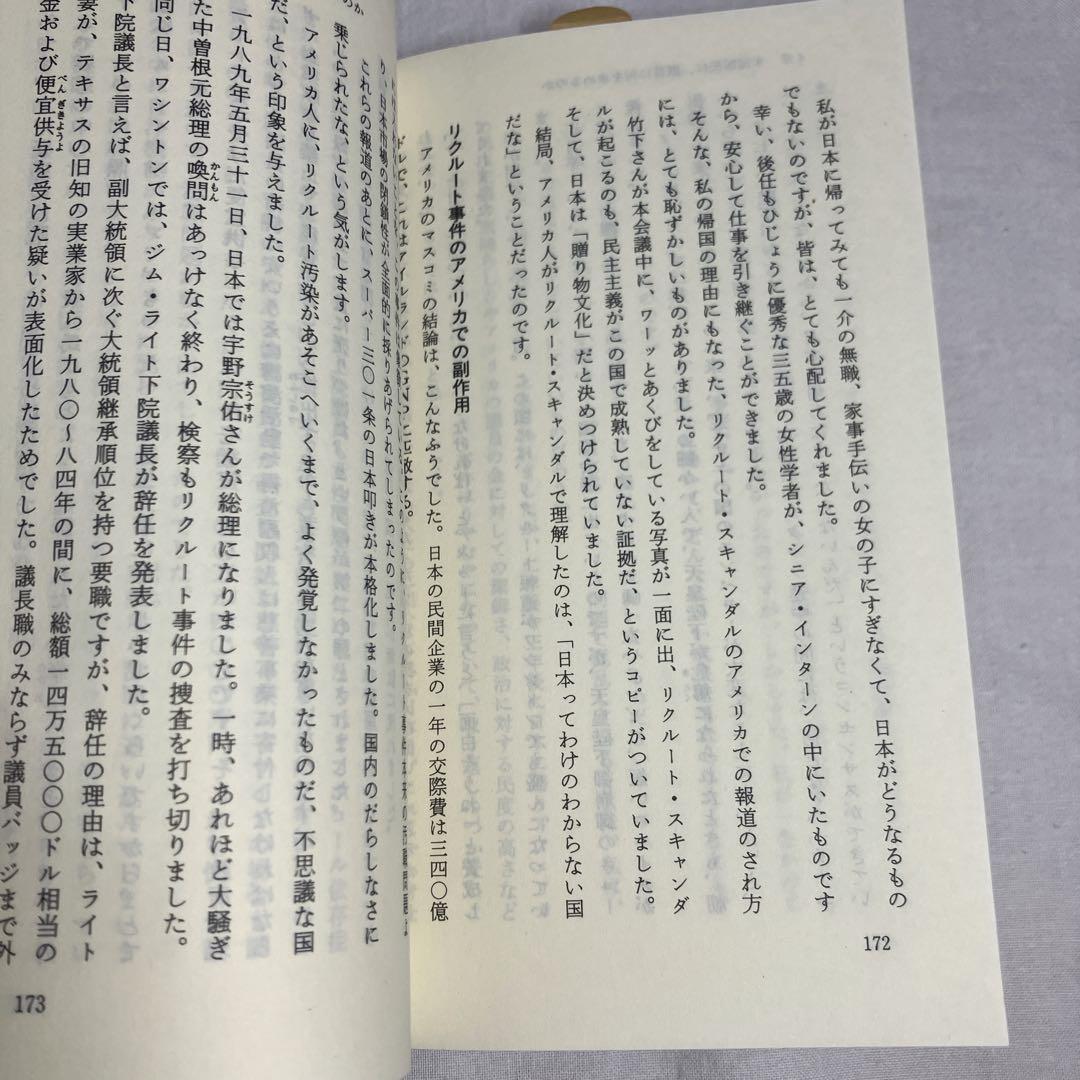 私が日本に帰ってみても一介の無職、家事手伝いの女の子にすぎなくて、日本がどうなるもの
でもないのですが、皆は、とても心配してくれました。
幸い、後任もひじょうに優秀な三五歳の女性学者が、シニア・インターンの中にいたものです
から、安心して仕事を引き継ぐことができました。
そんな、私の帰国の理由にもなった、リクルート・スキャンダルのアメリカでの報道のされ方
には、とても恥ずかしいものがありました。
竹下さんが本会議中に、ワーッとあくびをしている写真が一面に出、リクルート・スキャンダ
ルが起こるのも、民主主義がこの国で成熟していない証拠だ、というコピーがついていました。
そして、日本は「贈り物文化」だと決めつけられていました。
結局、アメリカ人がリクルート・スキャンダルで理解したのは、「日本ってわけのわからない国
だな」ということだったのです。
リクルート事件のアメリカでの副作用
アメリカのマスコミの結論は、こんなふうでした。日本の民間企業の一年の交際費は三四〇億
ドルで、これはアイルランドのGNPに匹敵する。
172
り、日本市場の閉鎖性が全面的に採りあげられてしまったのです。
これらの報道のあとに、スーパー三〇一条の日本叩きが本格化しました。国内のだらしなさに
乗じられたな、という気がします。
アメリカ人に、リクルート汚染があそこへいくまで、よく発覚しなかったものだ、不思議な国
だ、という印象を与えました。
一九八九年五月三十一日、日本では宇野宗佑さんが総理になりました。一時、あれほど大騒ぎ
た中曽根元総理の喚問はあっけなく終わり、検察もリクルート事件の捜査を打ち切りました。
同じ日、ワシントンでは、ジム・ライト下院議長が辞任を発表しました。
下院議長と言えば、副大統領に次ぐ大統領継承順位を持つ要職ですが、辞任の理由は、ライト
妻が、テキサスの旧知の実業家から一九八〇〜八四年の間に、総額一四万五〇〇〇ドル相当の
金および便宜供与を受けた疑いが表面化したためでした。議長職のみならず議員バッジまで外
173